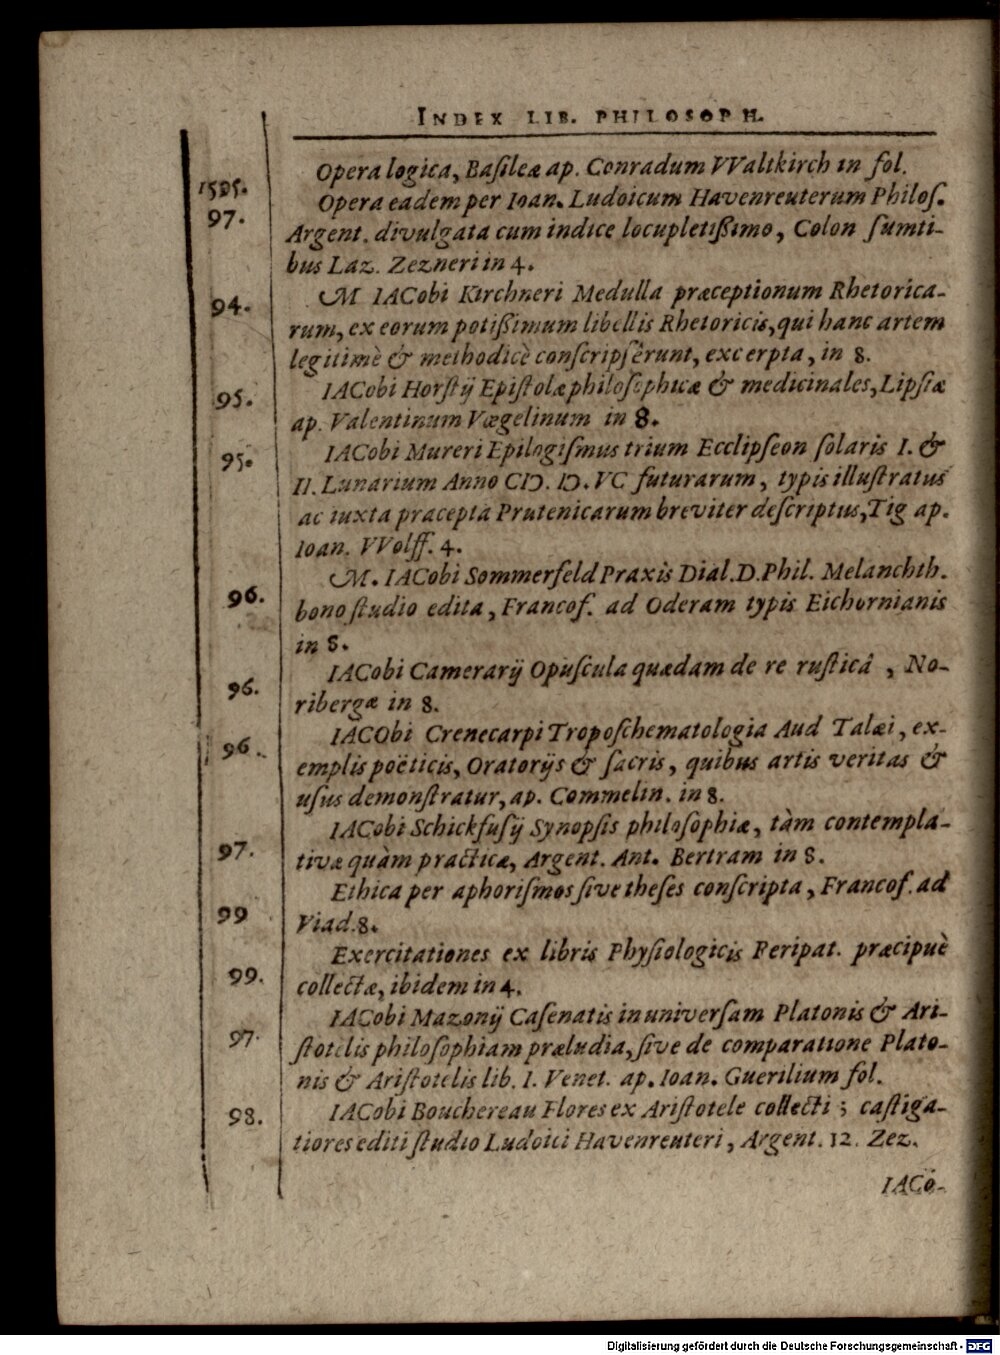 INDEX LIB. PHILOSOPH.
Opera logica, Baſileæ ap. Conradum VValtkirch in fol.
1595.
Opera eadem per Ioan. Ludoicum Havenreuterum Philoſ.
97.
Argent. divulgata cum indice locupletißimo, Colon ſumti-
bus Laz. Zezneri in 4.
M IACobi Kirchneri Medulla præceptionum Rhetorica-
94.
rum, ex eorum potißimum libellis Rhetoricis, qui hanc artem
legitimè & methodicè conſcripſêrunt, excerpta, in 8.
IACobi Horſtij Epiſtolæ philoſophicæ & medicinales, Lipſiæ
95.
ap. Valentinum Vœgelinum in 8.
IACobi Mureri Epilogiſmus trium Ecclipſeon ſolaris I. &
95.
II. Lunarium Anno CIↃ. IↃ. VC futurarum, typis illuſtratus
ac iuxta præcepta Prutenicarum breviter deſcriptus, Tig ap.
Ioan. VVolff. 4.
M. IACobi Sommerfeld Praxis Dial. D. Phil. Melanchth.
96.
bono ſtudio edita, Francof. ad Oderam typis Eichornianis
in 8.
IACobi Camerarij Opuſcula quædam de re ruſticâ, No-
96.
ribergæ in 8.
IACObi Crenecarpi Tropoſchematologia Aud Talæi, ex-
96.
emplis poëticis, Oratorijs & ſacris, quibus artis veritas &
uſus demonſtratur, ap. Commelin. in 8.
IACobi Schickfuſij Synopſis philoſophiæ, tàm contempla-
97.
tivæ quàm practicæ, Argent. Ant. Bertram in 8.
Ethica per aphoriſmos ſive theſes conſcripta, Francof. ad
99
Viad. 8.
Exercitationes ex libris Phyſiologicis Peripat. præcipuè
99.
collectæ, ibidem in 4.
IACobi Mazonij Caſenatis in univerſam Platonis & Ari-
97.
ſtotelis philoſophiam præludia, ſive de comparatione Plato-
nis & Ariſtotelis lib. I. Venet. ap. Ioan. Guerilium fol.
IACobi Bouchereau Flores ex Ariſtotele collecti; caſtiga-
98.
tiores editi ſtudio Ludoici Havenreuteri, Argent. 12. Zez.
IACo-
Digitalisierung gefördert durch die Deutsche Forschungsgemeinschaft - DFG